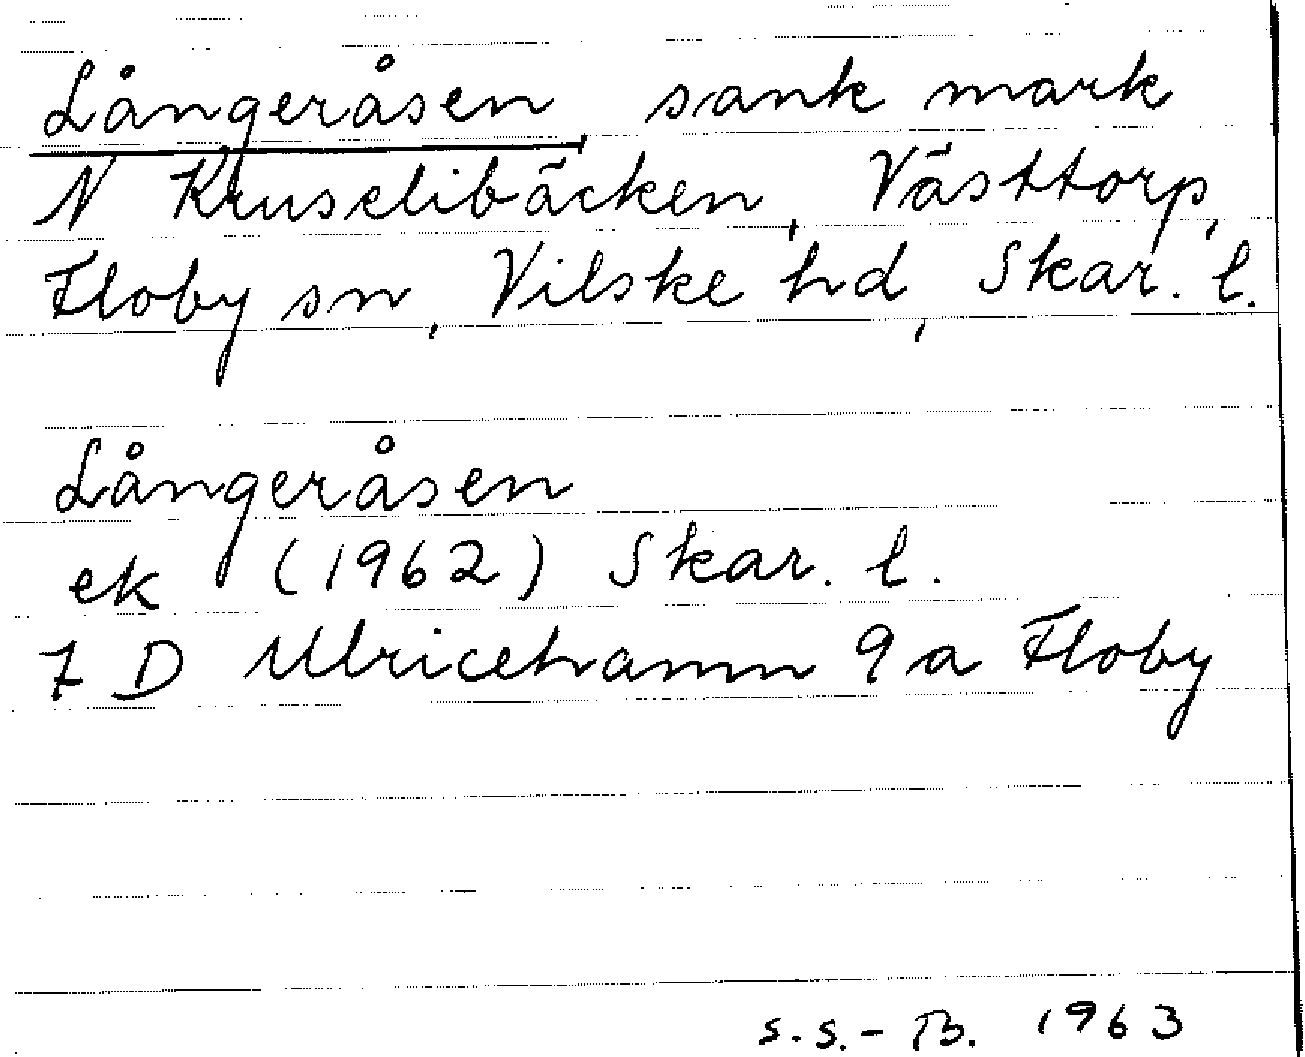 Långeråsen, sank mark
N Kruselibäcken, Västtorp,
Floby sn, Vilske hd, Skar. l.
Långeråsen
ek (1962) Skar. l.
7 D Ulricehamn 9 a Floby
S.S.-B. 1963